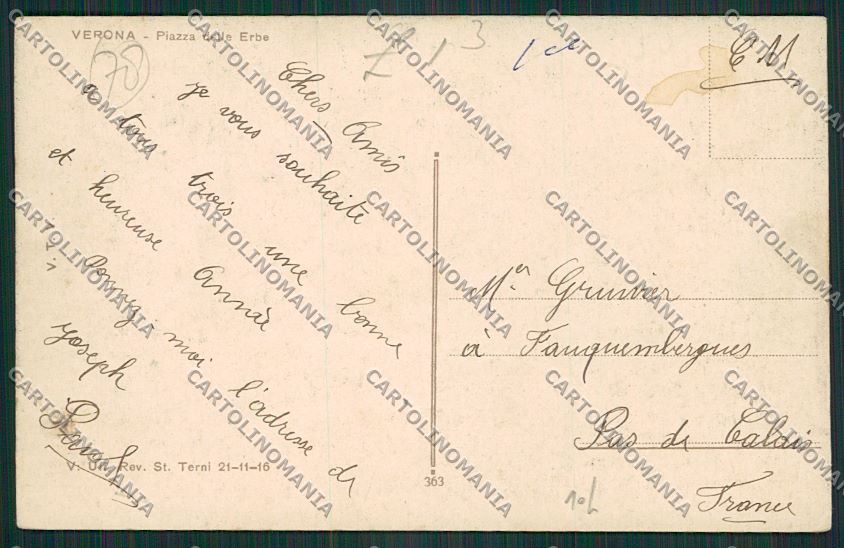 VERONA - Piazza delle Erbe
70
1 3
C M
Chers Amis
je vous souhaite
a tous trois une bonne
et heureuse Année
moi l'adresse de
Joseph
Paul
V: Uff. Rev. St. Terni 21-11-16
363
Mr Gruvier
à Fauquembergues
Pas de Calais
France
CARTOLINOMANIA